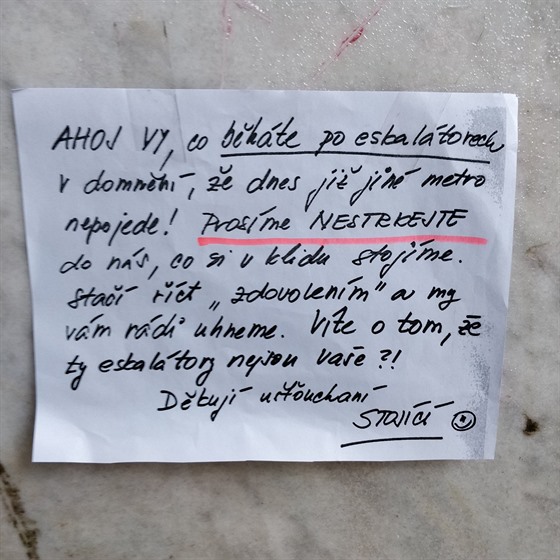 AHOJ VY, co běháte po eskalátorech
v domnění, že dnes již jiné metro
nepojede! Prosíme NESTRKEJTE
do nás, co si v klidu stojíme.
Stačí říct „zdovolením" a my
vám rádi uhneme. Víte o tom, že
ty eskalátory nejsou vaše?!
Děkují ušťouchaní
STOJÍCÍ ☺